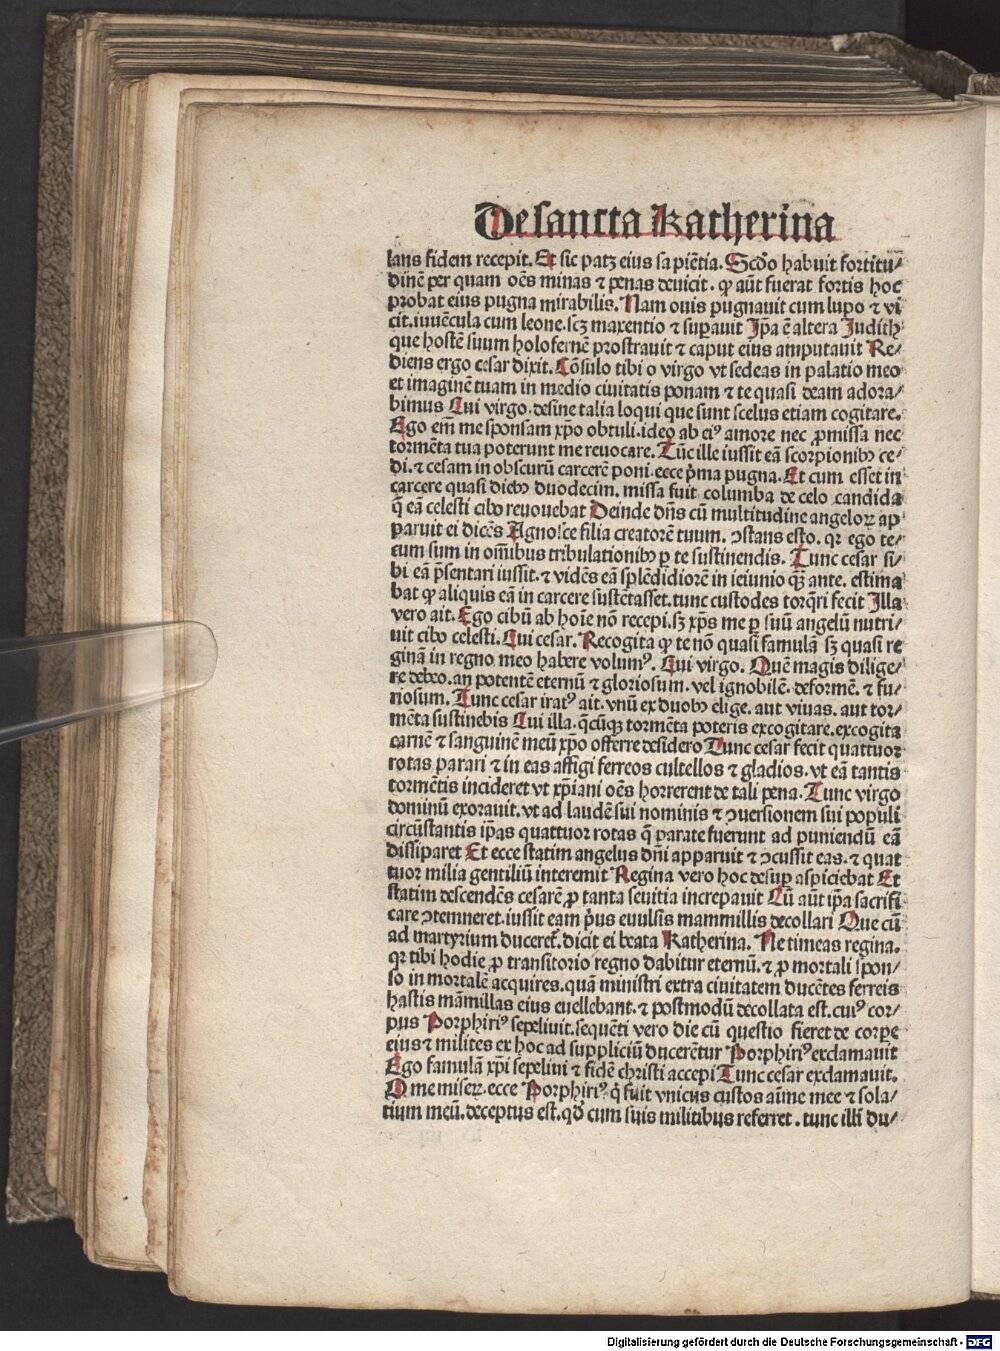 De sancta Katherina
lans fidem recepit. Et sic patꝫ eius sapiẽtia. Scďo habuit fortitu⸗
dinẽ per quam oẽs minas ⁊ penas deuicit. ꝙ aũt fuerat fortis hoc
probat eius pugna mirabilis. Nam ouis pugnauit cum lupo ⁊ vi
cit. iuuẽcula cum leone. scꝫ maxentio ⁊ suꝑauit Ip̃a ẽ altera Judith
que hostẽ suum holofernẽ prostrauit ⁊ caput eius amputauit Re⸗
diens ergo cesar dixit. Cõsulo tibi o virgo vt sedeas in palatio meo
et imaginẽ tuam in medio ciuitatis ponam ⁊ te quasi deam adora⸗
bimus Cui virgo. desine talia loqui que sunt scelus etiam cogitare.
Ego em̃ me sponsam xp̃o obtuli. ideo ab eiꝰ amore nec ꝓmissa nec
tormẽta tua poterunt me reuocare. Tũc ille iussit eã scorpionibꝫ ce⸗
di. ⁊ cesam in obscurũ carcerẽ poni. ecce p̃ma pugna. Et cum esset in
carcere quasi diebꝫ duodecim. missa fuit columba de celo candida
q̃ eã celesti cibo reuouebat Deinde dñs cũ multitudine angeloꝝ ap
paruit ei dicẽs Agnosce filia creatorẽ tuum. ↄstans esto. qꝛ ego te⸗
cum sum in om̃ibus tribulationibꝫ ꝑ te sustinendis. Tunc cesar si⸗
bi eã p̃sentari iussit. ⁊ vidẽs eã splẽdidiorẽ in ieiunio qꝫ̃ ante. estima
bat ꝙ aliquis eã in carcere sustẽtasset. tunc custodes torq̃ri fecit Illa
vero ait. Ego cibũ ab hoĩe nõ recepi. sꝫ xp̃s me ꝑ suũ angelũ nutri⸗
uit cibo celesti. Cui cesar. Recogita ꝙ te nõ quasi famulã sꝫ quasi re
ginã in regno meo habere volumꝰ. Cui virgo. Quẽ magis dilige⸗
re debeo. an potentẽ eternũ ⁊ gloriosum. vel ignobilẽ. deformẽ. ⁊ fu⸗
riosum. Tunc cesar iratꝰ ait. vnũ ex duobꝫ elige. aut viuas. aut tor⸗
mẽta sustinebis Cui illa. q̃cũqꝫ tormẽta poteris excogitare. excogita
carnẽ ⁊ sanguinẽ meũ xp̃o offerre desidero Tunc cesar fecit quattuor
rotas parari ⁊ in eas affigi ferreos cultellos ⁊ gladios. vt eã tantis
tormẽtis incideret vt xp̃iani oẽs horrerent de tali pena. Tunc virgo
dominũ exorauit. vt ad laudẽ sui nominis ⁊ ↄuersionem sui populi
circũstantis ip̃as quattuor rotas q̃ parate fuerunt ad puniendũ eã
dissiparet Et ecce statim angelus dñi apparuit ⁊ ↄcussit eas. ⁊ quat
tuor milia gentiliũ interemit Regina vero hoc desuꝑ aspiciebat Et
statim descendẽs cesarẽ ꝓ tanta seuitia increpauit Cũ aũt ip̃a sacrifi
care ↄtemneret. iussit eam p̃us euulsis mammillis decollari Que cũ
ad martyrium duceret̃. dicit ei beata Katherina. Ne timeas regina.
qꝛ tibi hodie ꝓ transitorio regno dabitur eternũ. ⁊ ꝓ mortali spon⸗
so in mortalẽ acquires. quã ministri extra ciuitatem ducẽtes ferreis
hastis mãmillas eius euellebant. ⁊ postmodũ decollata est. cuiꝰ cor⸗
pus Porphiriꝰ sepeliuit. sequẽti vero die cũ questio fieret de corꝑe
eius ⁊ milites ex hoc ad suppliciũ ducerẽtur Porphiriꝰ exclamauit
Ego famulã xp̃i sepeliui ⁊ fidẽ christi accepi Tunc cesar exclamauit.
O me miseꝝ. ecce Porphiriꝰ q̃ fuit vnicus custos aĩme mee ⁊ sola⸗
tium meũ. deceptus est. qď cum suis militibus referret. tunc illi du⸗
Digitalisierung gefördert durch die Deutsche Forschungsgemeinschaft - DFG